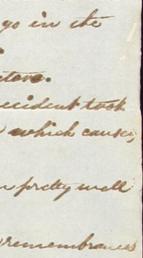 go in the
accident took
which causes
pretty well
remembrances